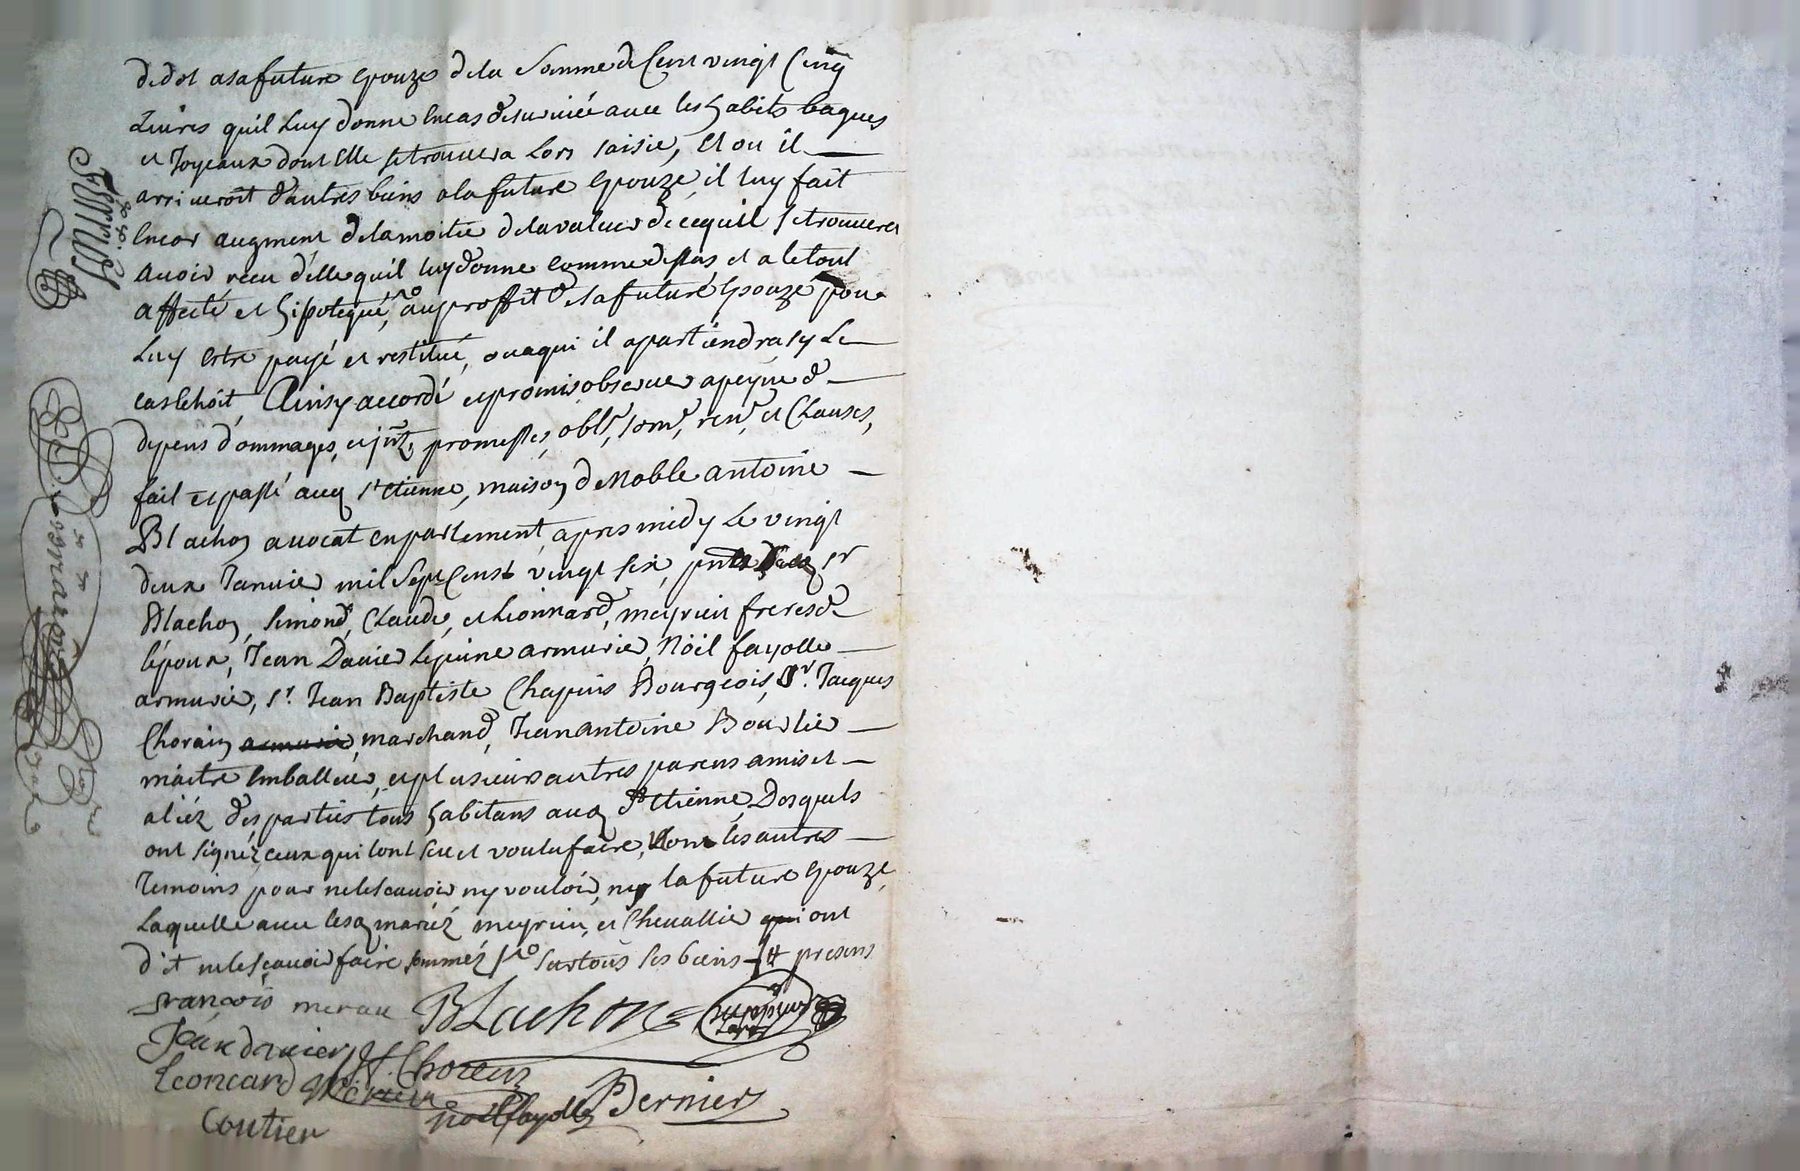 de dot a sa future epouze de la somme de Cent vingt Cinq
Livres quil Luy donne en cas de survie avec les habits bagues
et Joyeaux dont elle se trouvera Lors saisie, et ou il
arriveroit d'autres biens a la future Epouze, il luy fait
encor augment de la moitie de la valeur de ce quil se trouvera
avoir receu d'elle quil luy donne comme dessus et a le tout
affecté et hipotequé, au proffit de sa future Epouze pour
Luy estre payé et restitué, ou a qui il apartiendra sy Le
cas lehoit, Ainsy accordé et promis observer a peyne de
depens dommages, et jntz, promesses, oblõn, soum, ren, et Clauses,
fait et passé aud St Etienne, maison de Noble antoine
Blachon avocat en parlement, apres midy Le vingt
deux Janvier mil Sept Cens vingt six, pnts led sr
Blachon, Simond, Claude, et Leonnard, meyrieu freres de
l'epoux, Jean Davied Lejeune armurier, Nöel fayolle
armurier, sr. Jean Baptiste Chapuis Bourgeois, Sr. Jacques
Chorain armurier marchand, Jean antoine Bourlier
maitre Emballeur, et plusieurs autres parens amis et
aliéz des parties tous habitans aud St Etienne, Desquels
ont signéz ceux qui lont sceu et voulu faire, les autres
temoins pour ne le scavoir ny vouloir, ny la future epouze,
Laquelle avec lesd mariéz meyrieu, et Chevallier qui ont
dit ne le scavoir faire sommés sur tous ses biens presens
françois merau Blachon
Jean davier Chorein
Leonard fayolle Bernier
Coutier